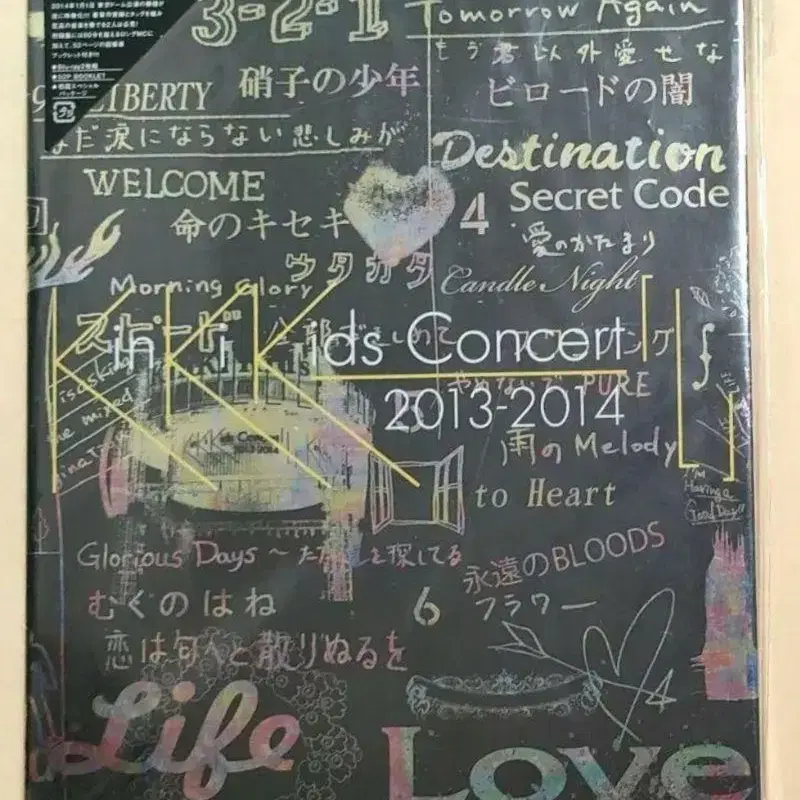 3-2-1
Tomorrow Again
もう君以外愛せな
LIBERTY
硝子の少年
ビロードの闇
まだ涙にならない悲しみが
Destination
WELCOME
Secret Code
命のキセキ
4
愛のかたまり
ウタカタ
Morning Glory
Candle Night
スピード
KinKi Kids Concert
やめないで PURE
2013-2014
雨のMelody
to Heart
I'm
Having a
Good Day!!
Glorious Days ~ ただ道を探してる
永遠のBLOODS
むくのはね
6
フラワー
恋は匂へと散りぬるを
Life
Love